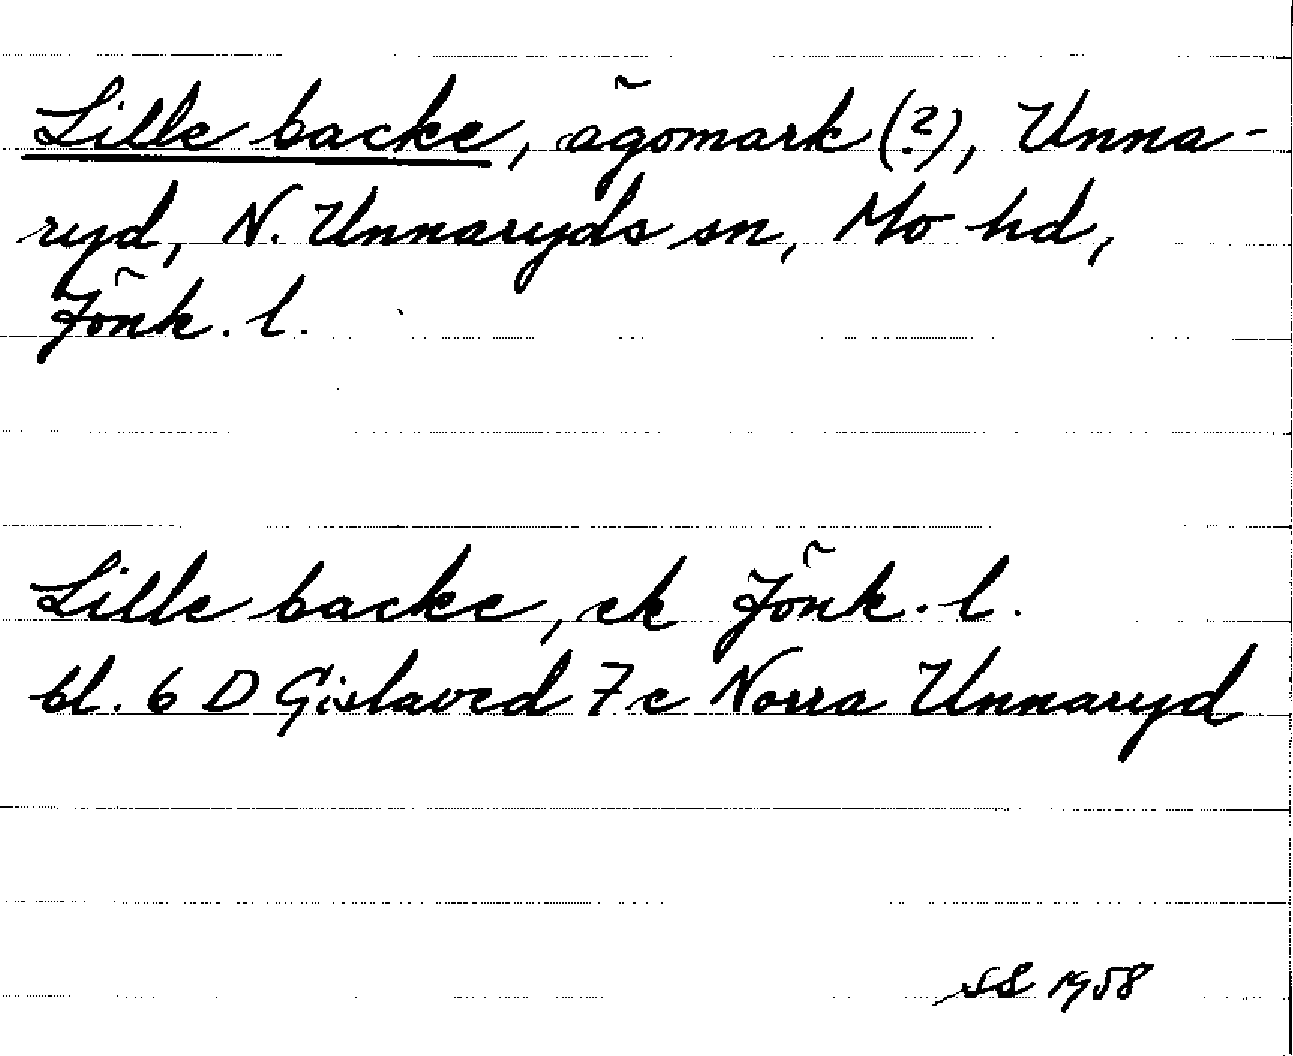 Lille backe, ägomark (?), Unna-
ryd, N. Unnaryds sn, Mo hd,
Jönk. l.
Lille backe, ek Jönk. l.
bl. 6 D Gislaved 7c Norra Unnaryd
SS 1958